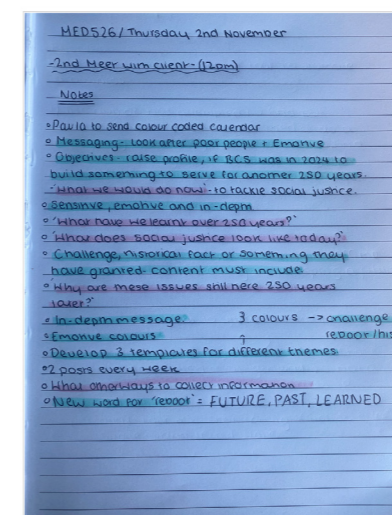 MED526/Thursday 2nd November
-2nd Meet with client- (12pm)
Notes
Paula to send colour coded calendar
Messaging- Look after poor people + Emotive
Objectives- raise profile, if BCS was in 2024 to
build something to serve for another 250 years.
'What we would do now'- to tackle social justice.
Sensitive, emotive and in-depth
'What have we learnt over 250 years?'
'What does social justice look like today?'
Challenge, historical fact or something they
have granted- content must include
'Why are these issues still here 250 years
later?'
In-depth message. 3 colours -> challenge
Emotive colours reboot/his
Develop 3 templates for different themes
2 posts every week
What other ways to collect information
New word for 'reboot' = FUTURE, PAST, LEARNED